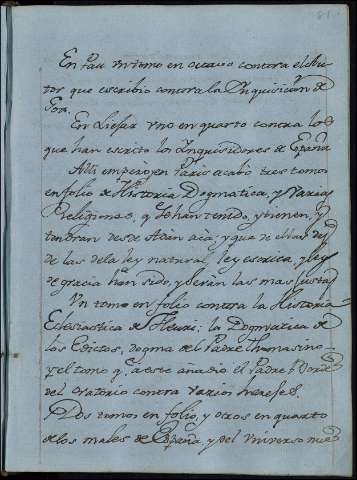 81.
En Pau un tomo en octavo contra el Au-
tor que escribio contra la Inquisicion de
Goa.
En Liesar uno en quarto contra los
que han escrito los Inquisidores de España
Alli empezo, y en Paris acabo tres tomos
en folio de Hist.a Dogmatica, y Varias
Religiones, q.e se han tenido, y tienen, y
tendran desde Adan acà; y que de ellas
de las de la ley natural, ley escrita, y ley
de gracia han sido, y seràn las mas justas
Un tomo en folio contra la Historia
Eclesiastica de Fleuri; la Dogmatica de
los Edictos, dogma del Padre Thomasino
y el tomo q.e a este añadio el Padre Borde
del Oratorio contra varios hereses.
Dos tomos en folio, y otros en quarto
de los males de España, y del Universo